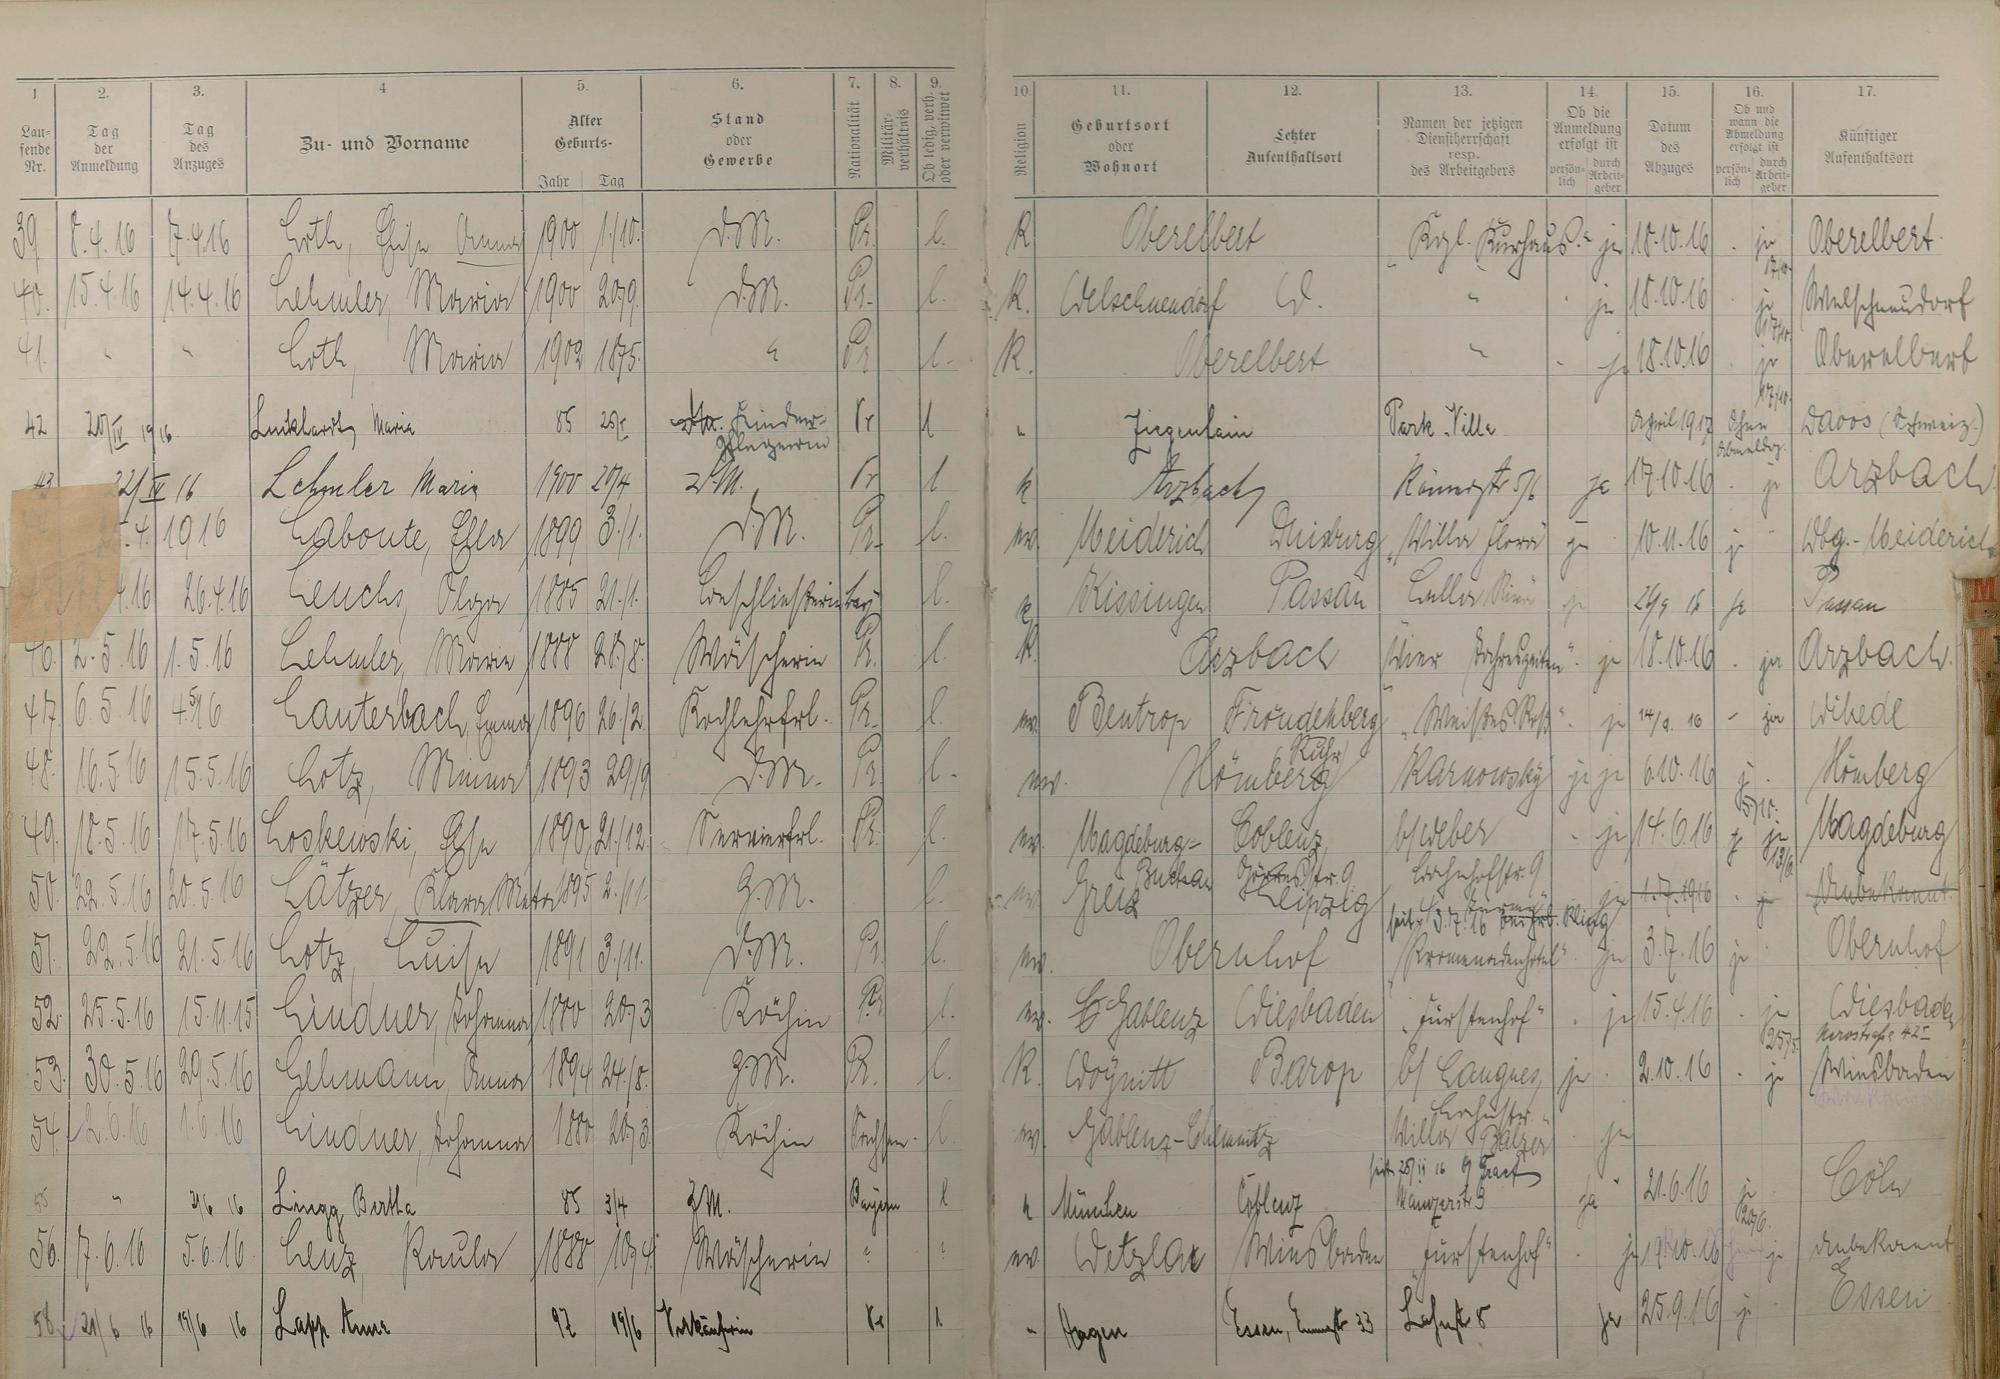 1 2. 3. 4 5. 6. 7. 8. 9. 10. 11. 12. 13. 14. 15. 16. 17.
Lau-fende Nr. Tag der Anmeldung Tag des Anzuges Zu- und Vorname Alter Geburts- Jahr Tag Stand oder Gewerbe Nationalität Militär-verhältnis Ob ledig, verh. oder verwitwet Religion Geburtsort oder Wohnort Letzter Aufenthaltsort Namen der jetzigen Dienstherrschaft resp. des Arbeitgebers Ob die Anmeldung erfolgt ist persön-lich durch Arbeit-geber Datum des Abzuges Ob und wann die Abmeldung erfolgt ist persön-lich durch Arbeit-geber Künftiger Aufenthaltsort
39 8.4.16 7.4.16 Loth, Anna 1900 1./10. D.M. Pr. l. K Oberelbert "Kgl. Kurhaus" ja 18.10.16 ja 17/10. Oberelbert
40. 15.4.16 14.4.16 Lehmler, Maria 1900 20/9. D.M. Pr. l. K. Welschneudorf W. " ja 18.10.16 ja 17/10. Welschneudorf
41. " " Loth, Maria 1902 18/5. " Pr l. K. Oberelbert " ja 18.10.16 ja 17/10. Oberelbert
42 20/IV 1916 Luckhardt, Maria 85 Kinder-pflegerin Pr l " Ziegenhain Park-Villa April 1917 Ohne Abmeldg. Davos (Schweiz.)
43 22/IV 16 Lehmler Maria 1900 20/4 Z.M. Pr l k Arzbach Römerstr. 5/6 ja 17.10.16 ja Arzbach
.4. 1916 Laboute, Ella 1899 3./1. D.M. Pr. l. ev. Meiderich Duisburg "Villa Flora" ja 10.11.16 ja Dbg.-Meiderich
4.16 26.4.16 Leuchs, Olga 1885 21./1. Beschließerin bay l. k Kissingen Passau ja 26/9 16 ja Passau
46. 2.5.16 1.5.16 Lehmler, Maria 1888 28/8. Wäscherin Pr. l. K. Arzbach "Vier Jahreszeiten" ja 18.10.16 ja Arzbach.
47. 6.5.16 4.5.16 Lauterbach, Emma 1896 26./2. Kochlehrfrl. Pr. l. ev. Bentrop Fröndenberg Ruhr "Weißes Roß" ja 14/9. 16 ja Wikede
48. 16.5.16 15.5.16 Lotz, Minna 1893 29/9 D.M. Pr. l. ev. Hömberg Karnowsky ja ja 6.10.16 ja 5/10. Hömberg
49. 18.5.16 17.5.16 Loskewski, Else 1890 21./12. Servierfrl. Pr. l. ev. Magdeburg-Buckau Coblenz Görresstr. 9 b/Weber Bahnhofstr. 9 ja 14.6.16 ja 13/6 Magdeburg
50. 22.5.16 20.5.16 Lätzer, Klara Meta 1895 2./11. Z.M. l. ev. Greiz Leipzig seit 3.7.16 ja 1.7.1916 ja Unbekannt.
51. 22.5.16 21.5.16 Lotz, Luise 1891 3./11. D.M. Pr. l. ev. Obernhof "Promenadenhotel" ja 3.7.16 ja Obernhof
52. 25.5.16 15.11.15 Lindner, Johanna 1880 20/3 Köchin Pr. l. ev. Gablenz Wiesbaden "Fürstenhof" ja 15.4.16 ja 25/5. Wiesbaden Nerostraße 42 I
53. 30.5.16 29.5.16 Lehmann, Anna 1894 24./8. Z.M. Pr. l. K. Woynitt Barop b/ Langnes, Bahnstr. ja 2.10.16 ja Wiesbaden
54. 2.6.16 1.6.16 Lindner, Johanna 1880 20/3. Köchin Sachsen. l. ev. Gablenz-Chemnitz "Villa Balzer" ja
55 " 2/6 16 Lingg Bertha 85 3/4 Z.M. Bayern l k München Coblenz Mainzerstr 9 ja 21.6.16 ja 20/6. Cöln
56. 7.6.16 5.6.16 Lenz, Paula 1888 10/4. Wäscherin " " ev. Wetzlar Wiesbaden "Fürstenhof" ja 19.10.16 ja unbekannt
58. 21/6 16 19/6 16 Lapp Anna 97 19/6 Verkäuferin Pr l " Hagen Essen, Emmastr 33 Lahnstr 8 ja 25.9.16 ja Essen